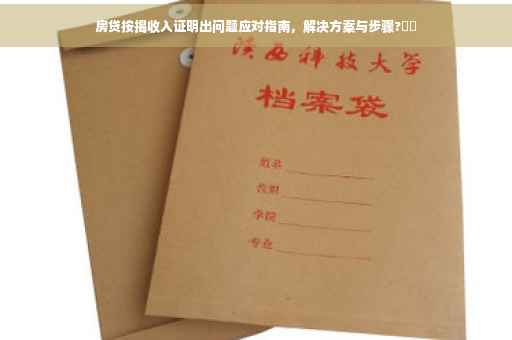 房贷按揭收入证明出问题应对指南，解决方案与步骤?
陕西科技大学
档案袋
姓名
学院
专业